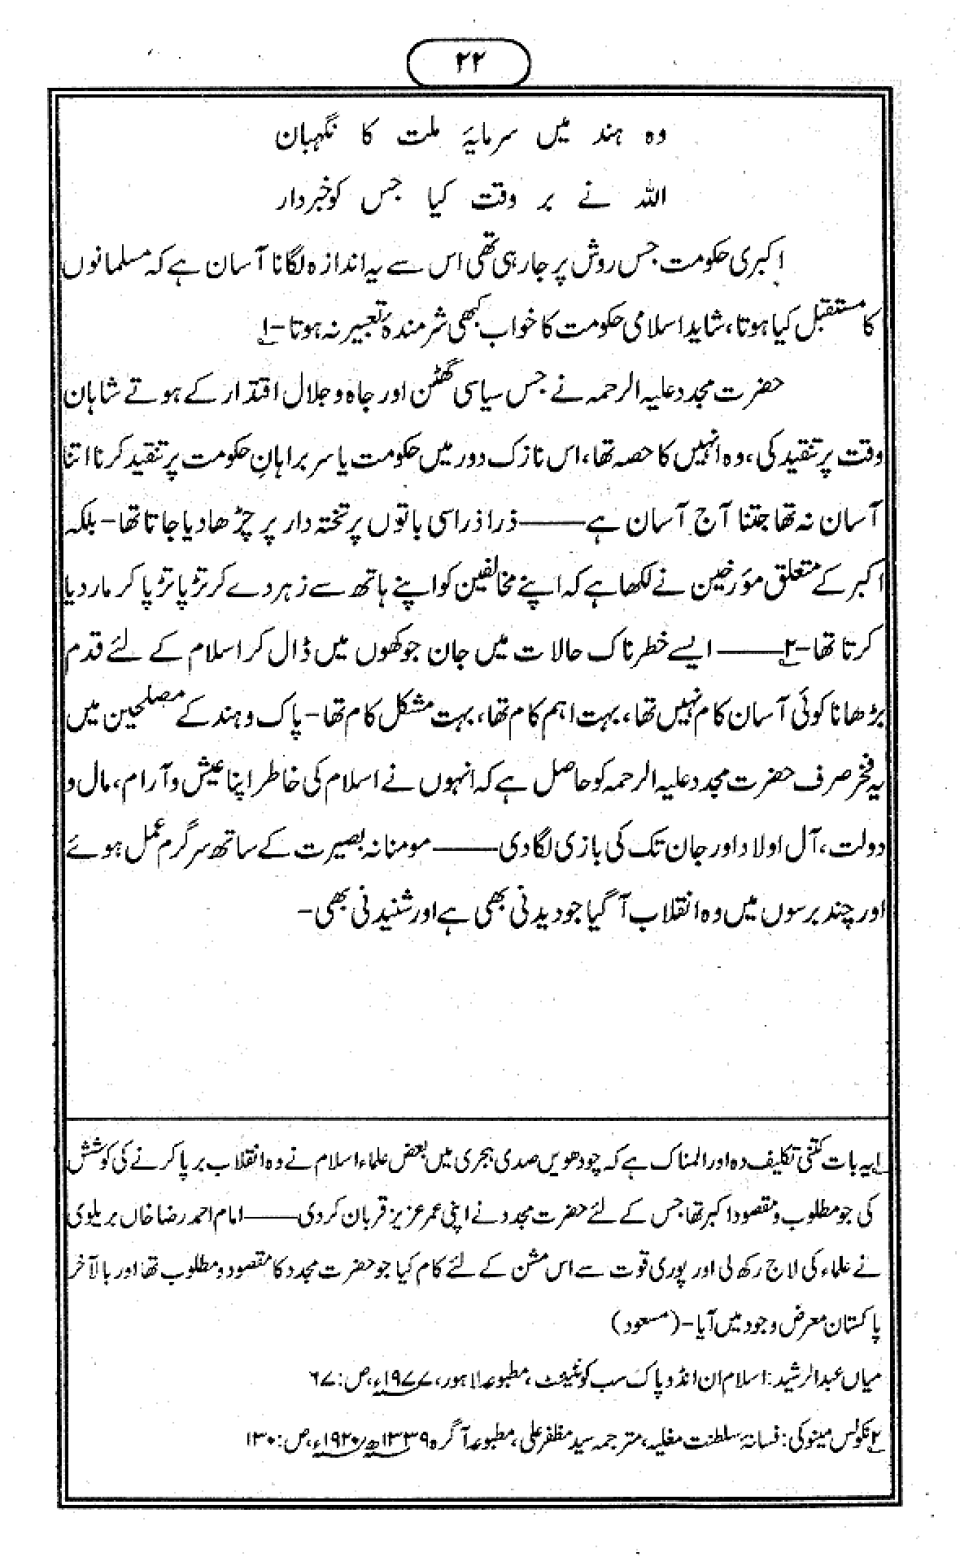 ۲۲
وہ ہند میں سرمایۂ ملت کا نگہبان
اللہ نے بر وقت کیا جس کو خبردار
اکبری حکومت جس روش پر جا رہی تھی اس سے یہ اندازہ لگانا آسان ہے کہ مسلمانوں
کا مستقبل کیا ہوتا، شاید اسلامی حکومت کا خواب کبھی شرمندۂ تعبیر نہ ہوتا-۱
حضرت مجدد علیہ الرحمہ نے جس سیاسی گھٹن اور جاہ و جلال اقتدار کے ہوتے شاہان
وقت پر تنقید کی، وہ انہیں کا حصہ تھا، اس نازک دور میں حکومت یا سربراہانِ حکومت پر تنقید کرنا اتنا
آسان نہ تھا جتنا آج آسان ہے——ذرا ذرا سی باتوں پر تختہ دار پر چڑھا دیا جاتا تھا- بلکہ
اکبر کے متعلق مؤرخین نے لکھا ہے کہ اپنے مخالفین کو اپنے ہاتھ سے زہر دے کر تڑپا تڑپا کر مار دیا
کرتا تھا-۲——ایسے خطرناک حالات میں جان جوکھوں میں ڈال کر اسلام کے لئے قدم
بڑھانا کوئی آسان کام نہیں تھا، بہت اہم کام تھا، بہت مشکل کام تھا- پاک و ہند کے مصلحین میں
یہ فخر صرف حضرت مجدد علیہ الرحمہ کو حاصل ہے کہ انہوں نے اسلام کی خاطر اپنا عیش و آرام، مال و
دولت، آل اولاد اور جان تک کی بازی لگا دی——مومنانہ بصیرت کے ساتھ سرگرم عمل ہوئے
اور چند برسوں میں وہ انقلاب آ گیا جو دیدنی بھی ہے اور شنیدنی بھی-
۱ یہ بات کتنی تکلیف دہ اور المناک ہے کہ چودھویں صدی ہجری میں بعض علماء اسلام نے وہ انقلاب برپا کرنے کی کوشش
کی جو مطلوب و مقصود اکبر تھا جس کے لئے حضرت مجدد نے اپنی عمر عزیز قربان کر دی——امام احمد رضا خاں بریلوی
نے علماء کی لاج رکھ لی اور پوری قوت سے اس مشن کے لئے کام کیا جو حضرت مجدد کا مقصود و مطلوب تھا اور بالآخر
پاکستان معرض وجود میں آیا-(مسعود)
میاں عبدالرشید: اسلام ان انڈو پاک سب کونٹینٹ، مطبوعہ لاہور، ۱۹۷۷ء، ص: ۶۷
۲ نکولس مینوکی: فسانۂ سلطنت مغلیہ، مترجمہ سید مظفر علی، مطبوعہ آگرہ ۱۳۳۹ھ/۱۹۲۰ء، ص: ۱۳۰